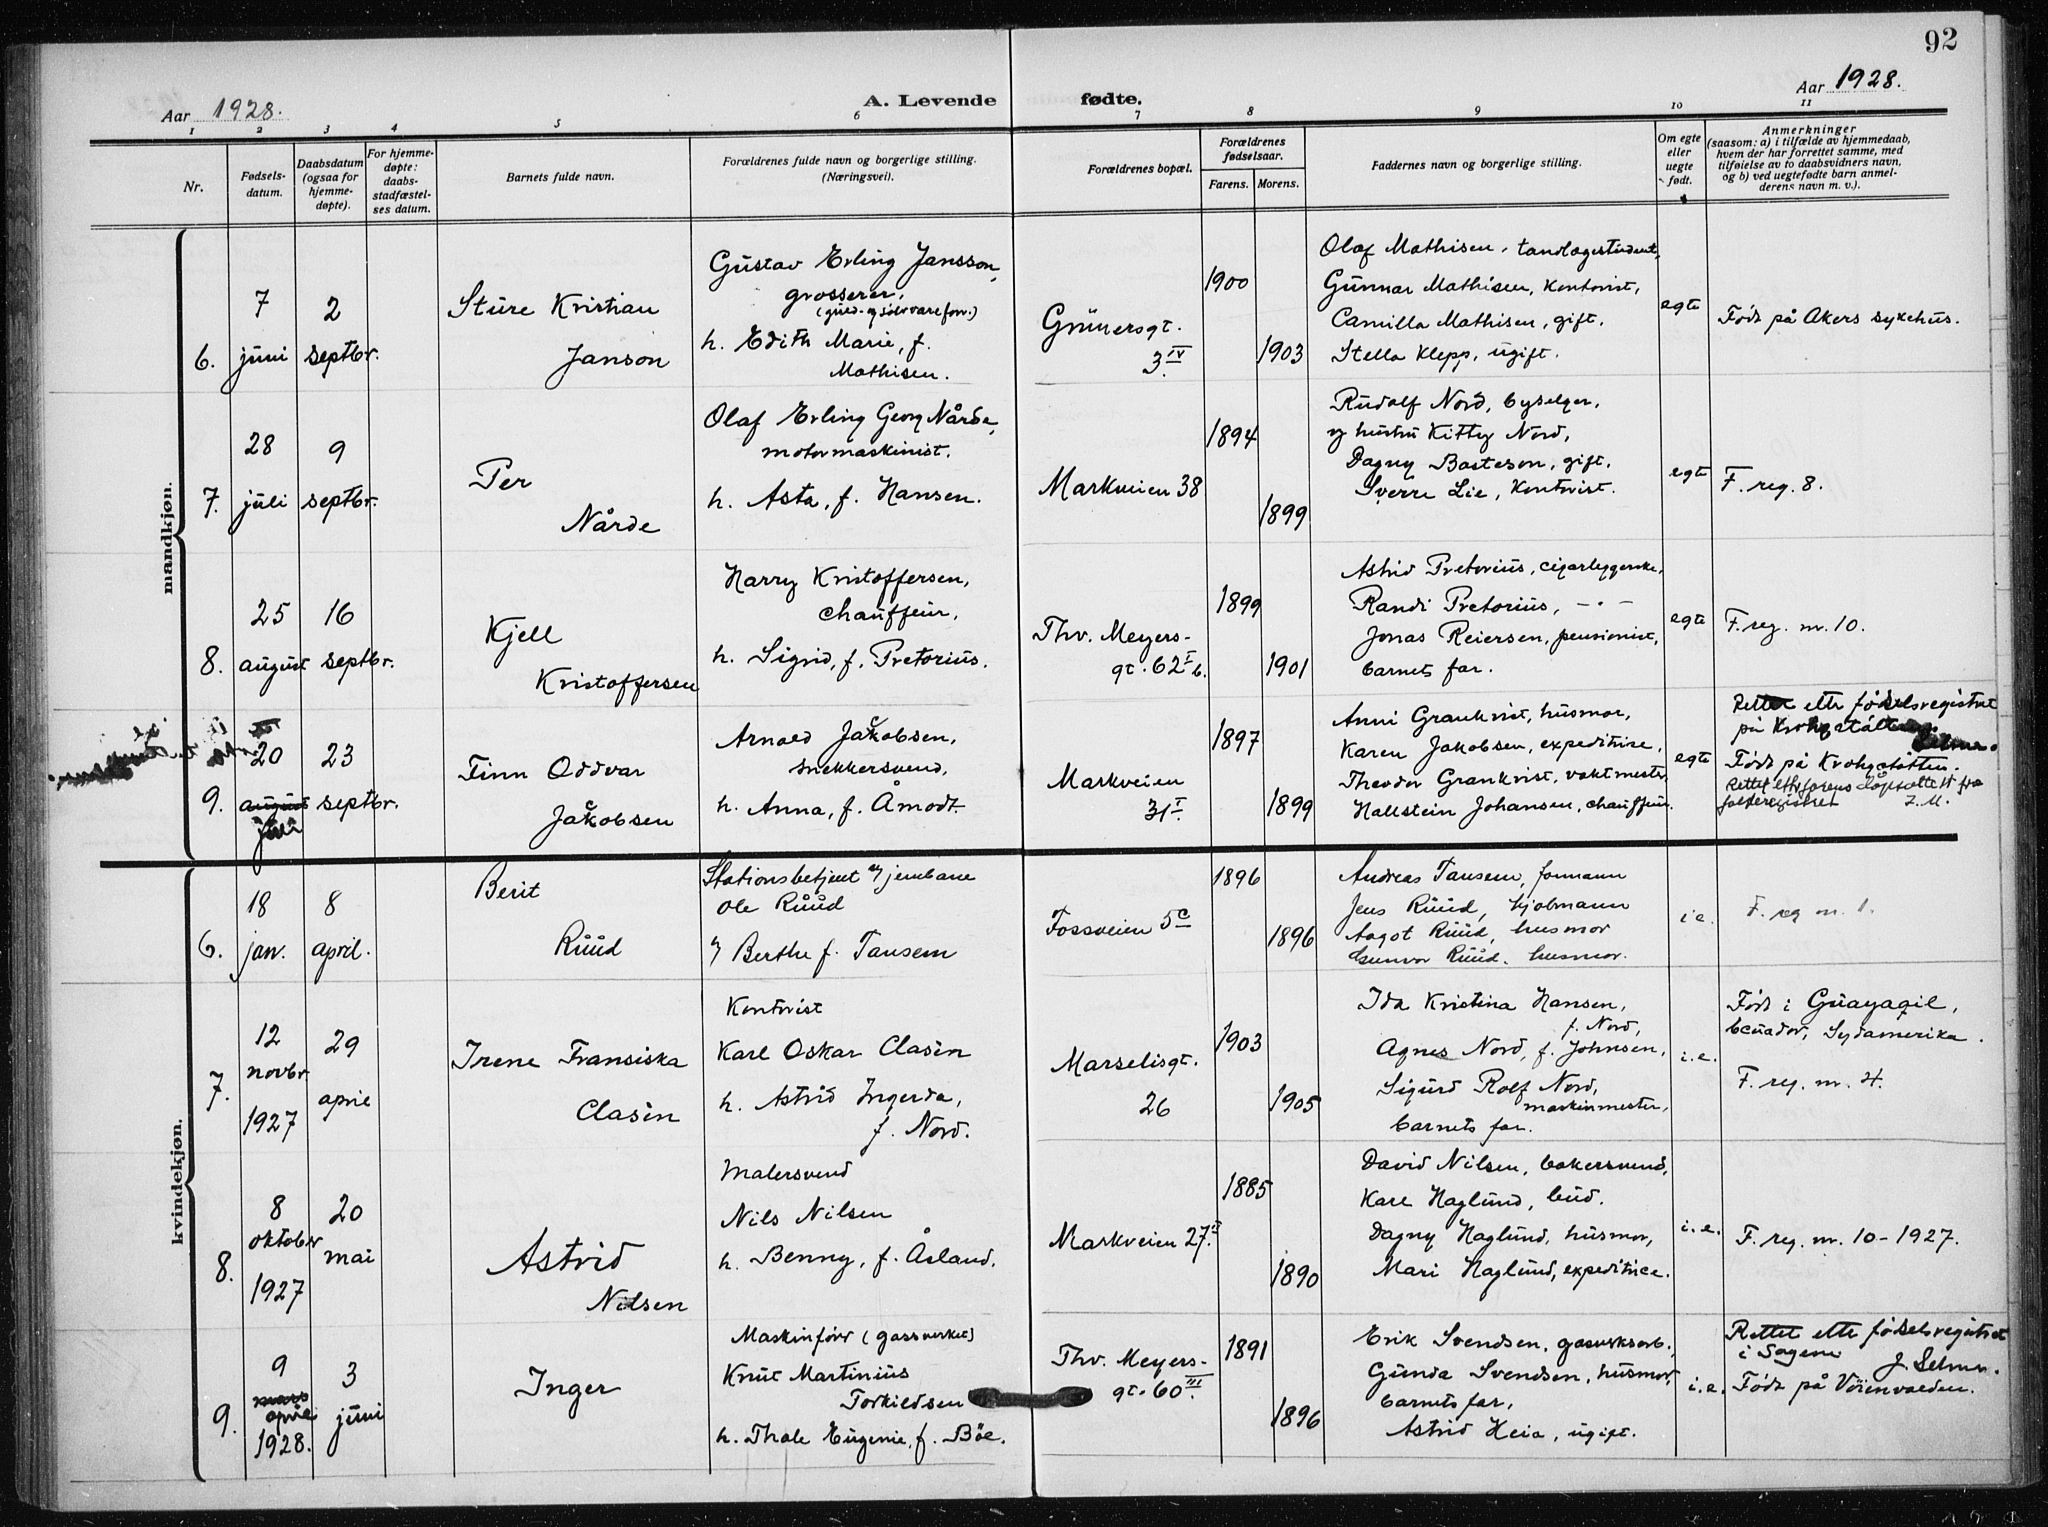 92
Aar 1928.
A. Levende fødte.
Aar 1928.
1 2 3 4 5 6 7 8 9 10 11
Nr.
Fødsels-
datum.
Daabsdatum
(ogsaa for
hjemme-
døpte).
For hjemme-
døpte:
daabs-
stadfæstel-
ses datum.
Barnets fulde navn.
Forældrenes fulde navn og borgerlige stilling.
(Næringsvei).
Forældrenes bopæl.
Forældrenes
fødselsaar.
Farens. Morens.
Faddernes navn og borgerlige stilling.
Om egte
eller
uegte
født.
Anmerkninger
(saasom: a) i tilfælde av hjemmedaab,
hvem der har forrettet samme, med
tilføielse av to daabsvidners navn,
og b) ved uegtefødte barn anmel-
derens navn m. v.).
mandkjøn.
6.
7
juni
2
septbr.
Sture Kristian
Janson
Gustav Erling Jansson,
grosserer,
(guld- og sølvvareforr.)
h. Edith Marie, f.
Mathisen.
Grünersgt.
3 IV
1900
1903
Olaf Mathisen, tandlægestudent,
Gunnar Mathisen, kontorist,
Camilla Mathisen, gift.
Stella Klepp, ugift.
egte
Født på Akers sykehus.
7.
28
juli
9
septbr.
Per
Nårde
Olaf Erling Georg Nårde,
motormaskinist.
h. Asta, f. Hansen.
Markveien 38
1894
1899
Rudolf Nord, byselger,
og hustru Kitty Nord,
Dagny Basteson, gift.
Sverre Lie, kontorist.
egte
F. reg. 8.
8.
25
august
16
septbr.
Kjell
Kristoffersen
Harry Kristoffersen,
chauffeur,
h. Sigrid, f. Pretorius.
Thv. Meyers-
gt. 62 I b.
1899
1901
Astrid Pretorius, cigarleggerske,
Randi Pretorius, - " -
Jonas Reiersen, pensionist,
barnets far.
egte
F. reg. nr. 10.
9.
20
august
juli
23
septbr.
Finn Oddvar
Jakobsen
Arnold Jakobsen,
snekkersvend,
h. Anna, f. Åmodt.
Markveien
31 I.
1897
1899
Anni Grankvist, husmor,
Karen Jakobsen, expeditrise,
Theodor Grankvist, vaktmester
Hallstein Johansen, chauffeur.
egte
Rettet efter fødselsregistret
på Krohgstøtten.
Født på Krohgstøtten.
kvindekjøn.
6.
18
jan.
8
april.
Berit
Rúúd
Stationsbetjent v/ jernbane
Ole Rúúd
og Berthe f. Tansem
Fossveien 5 c
1896
1896
Andreas Tansem, formann
Jens Rúúd, hjolmann
Aagot Rúúd, husmor
Gunvor Rúúd. husmor.
i e.
F. reg nr. 1.
7.
12
novbr
1927
29
april
Irene Fransiska
Clasèn
Kontorist
Karl Oskar Clasèn
h. Astrid Ingerda,
f. Nord.
Marselisgt.
26
1903
1905
Ida Kristina Hansen,
f. Nord,
Agnes Nord, f. Johnsen,
Sigurd Rolf Nord,
maskinmester,
barnets far.
i. e.
Født i Guayaqil,
Ecuador, Sydamerika.
F. reg. nr. 4.
8.
8
oktober
1927
20
mai
Astrid
Nilsen
Malersvend
Nils Nilsen
h. Benny, f. Åsland.
Markveien 27 II.
1885
1890
David Nilsen, bakersvend,
Karl Haglund, bud.
Dagny Haglund, husmor,
Mari Haglund, expeditrice.
i. e.
F. reg. nr. 10 - 1927.
9.
9
mars
april
1928.
3
juni
Inger
Maskinfører (gassverket)
Knut Martinius
Torkildsen
h. Thale Eugenie, f. Böe.
Thv. Meyers-
gt. 60 III.
1891
1896
Erik Svendsen, gasverksarb.,
Gunda Svendsen, husmor,
barnets far,
Astrid Heia, ugift.
i. e.
Rettet efter fødselsregistret
i Sagene J. Selmer.
Født på Vöienvolden.